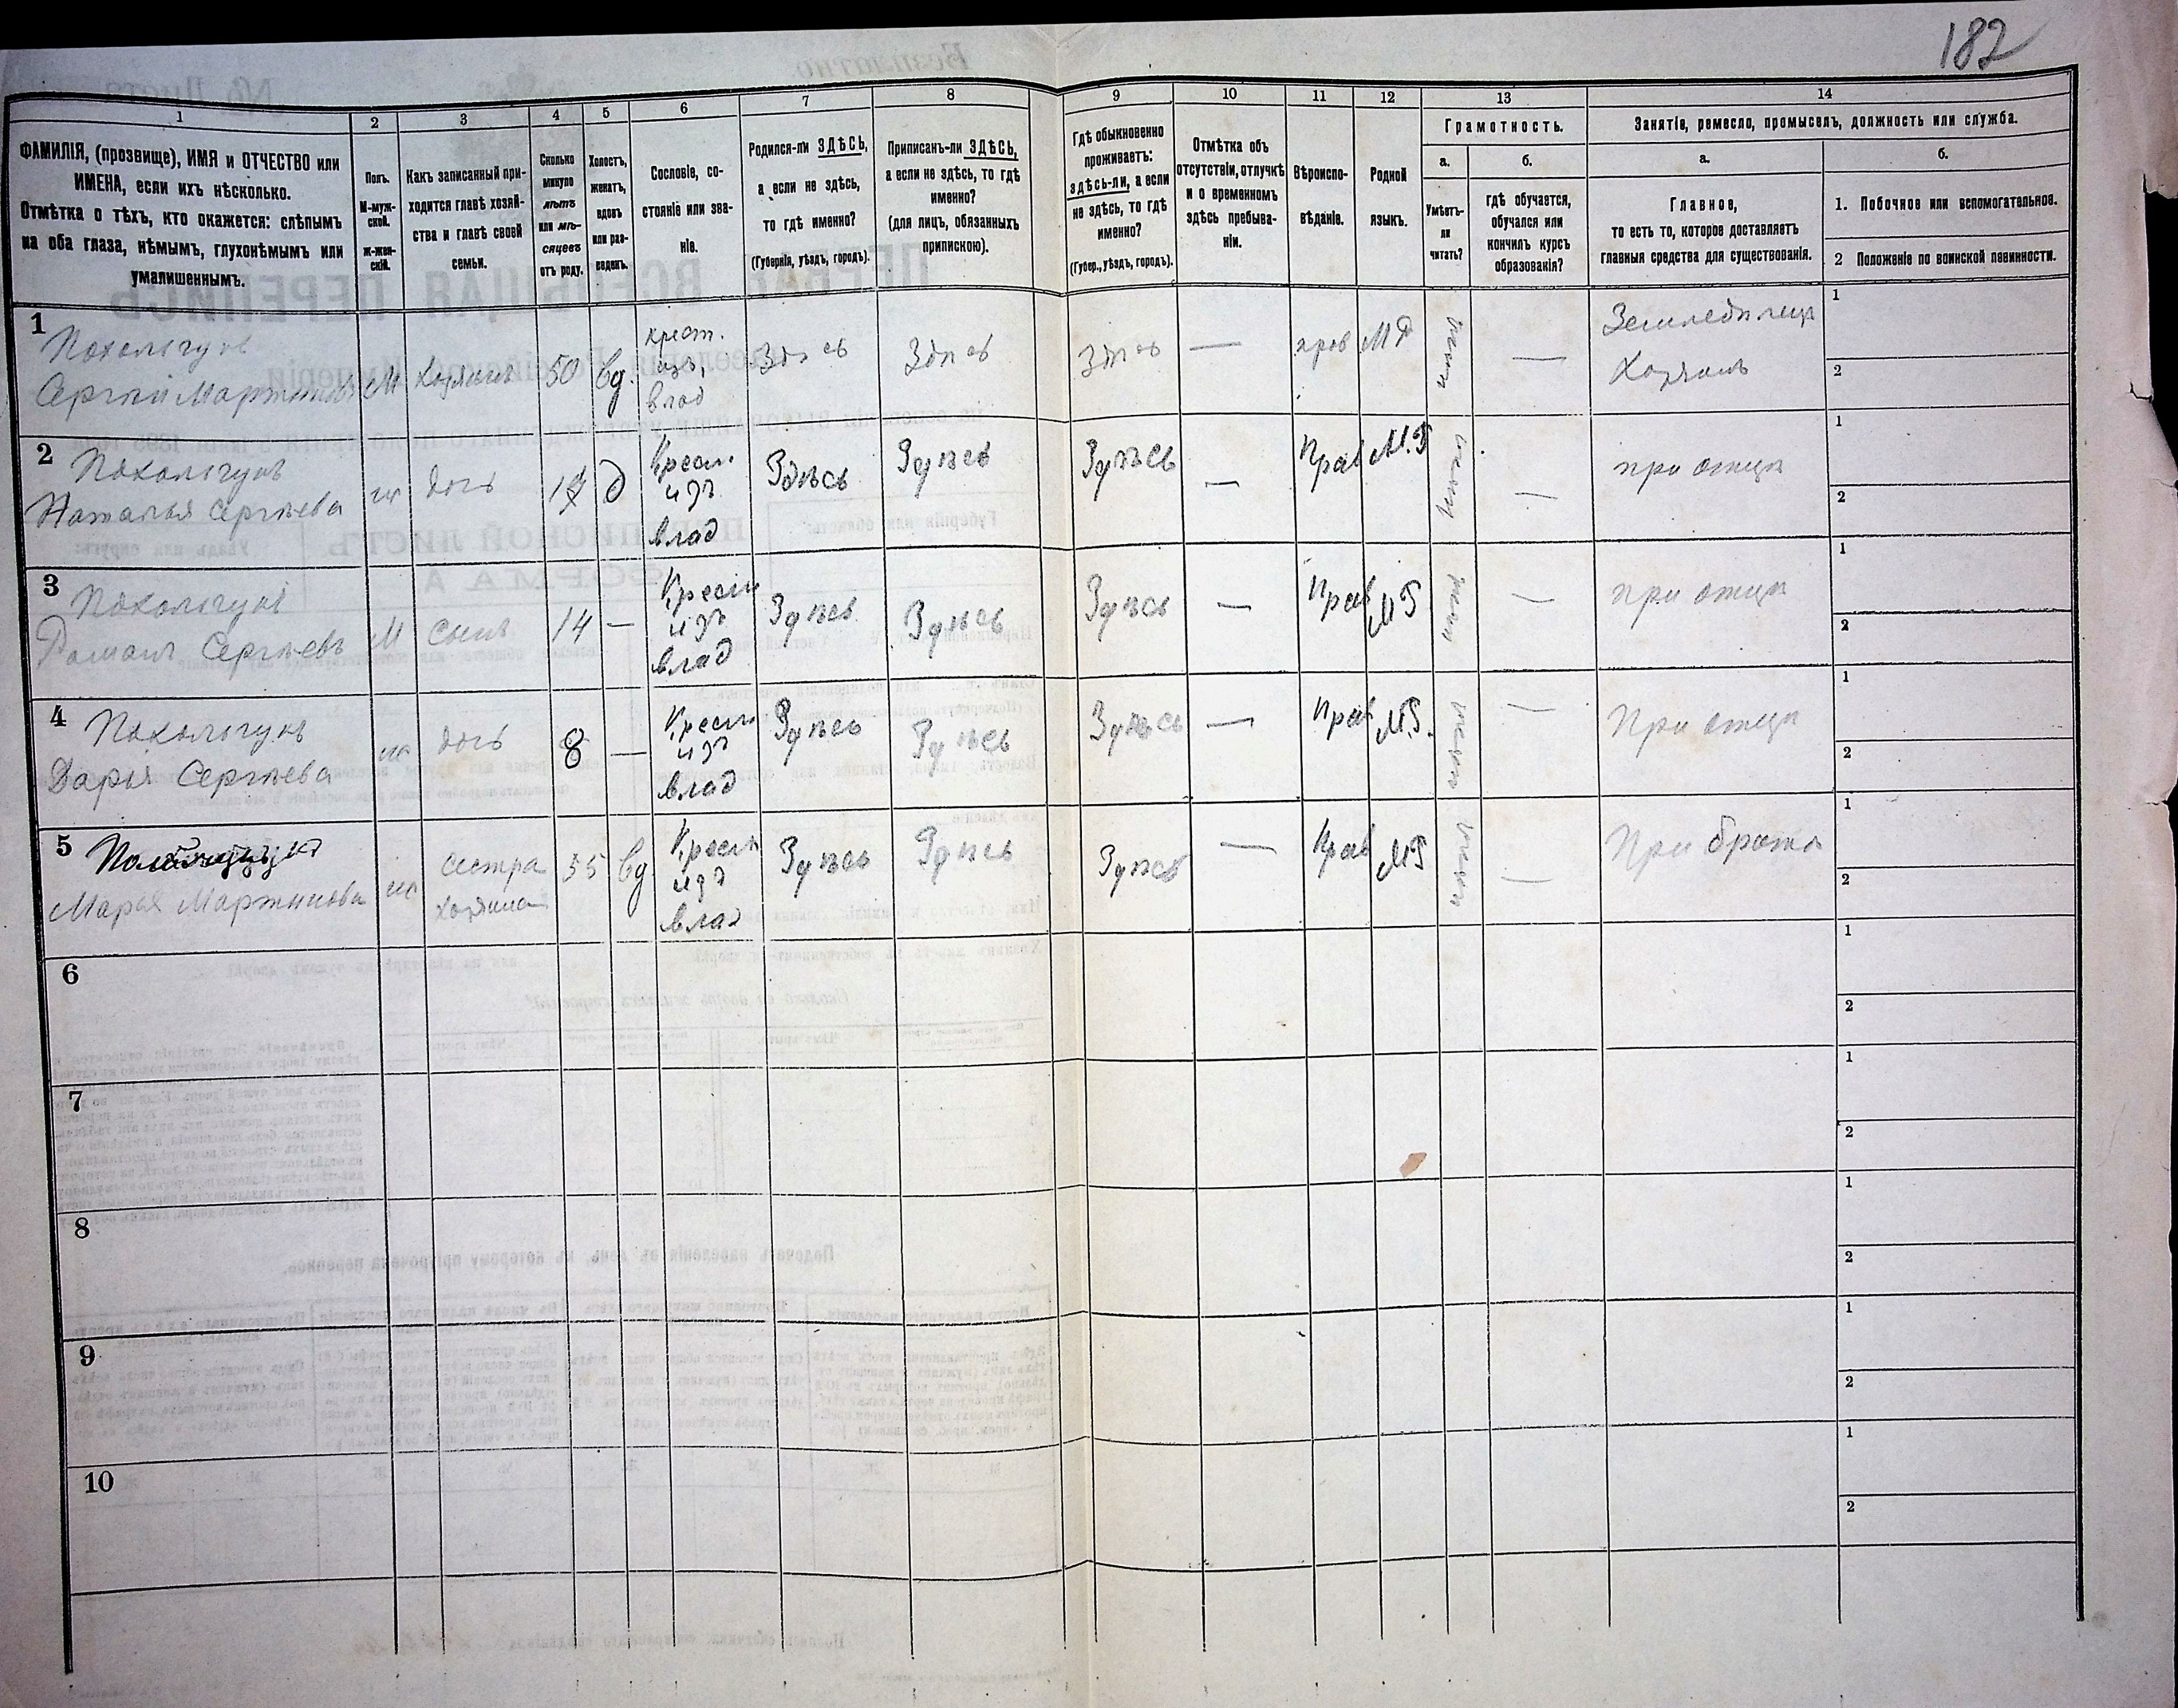 182
1
2
3
4
5
6
7
8
9
10
11
12
13
14
ФАМИЛІЯ, (прозвище), ИМЯ и ОТЧЕСТВО или
ИМЕНА, если ихъ нѣсколько.
Отмѣтка о тѣхъ, кто окажется: слѣпымъ
на оба глаза, нѣмымъ, глухонѣмымъ или
умалишеннымъ.
Полъ.
М-муж-
ской.
Ж-жен-
скій.
Какъ записанный при-
ходится главѣ хозяй-
ства и главѣ своей
семьи.
Сколько
минуло
лѣтъ
или мѣ-
сяцевъ
отъ роду.
Холостъ,
женатъ,
вдовъ
или раз-
веденъ.
Сословіе, со-
стояніе или зва-
ніе.
Родился-ли ЗДѢСЬ,
а если не здѣсь,
то гдѣ именно?
(Губернія, уѣздъ, городъ).
Приписанъ-ли ЗДѢСЬ,
а если не здѣсь, то гдѣ
именно?
(для лицъ, обязанныхъ
припискою).
Гдѣ обыкновенно
проживаетъ:
здѣсь-ли, а если
не здѣсь, то гдѣ
именно?
(Губер., уѣздъ, городъ).
Отмѣтка объ
отсутствіи, отлучкѣ
и о временномъ
здѣсь пребыва-
ніи.
Вѣроиспо-
вѣданіе.
Родной
языкъ.
Грамотность.
а.
Умѣетъ-
ли
читать?
б.
гдѣ обучается,
обучался или
кончилъ курсъ
образованія?
Занятіе, ремесло, промыселъ, должность или служба.
а.
Главное,
то есть то, которое доставляетъ
главныя средства для существованія.
б.
1. Побочное или вспомогательное.
2 Положеніе по воинской повинности.
1
Сергѣй Мартиновъ
М
Хозяинъ
50
вд.
крест.
изъ
влад
Здѣсь
Здѣсь
Здѣсь
—
прав
нѣтъ
—
Хозяинъ
1
2
2
Наталья Сергѣева
ж
дочь
д
Крест.
изъ
влад
Здѣсь
Здѣсь
Здѣсь
—
Прав
нѣтъ
—
при отцѣ
1
2
3
Романъ Сергѣевъ
М
сынъ
14
—
Крест
изъ
влад
Здѣсь
Здѣсь
Здѣсь
—
Прав
нѣтъ
—
при отцѣ
1
2
4
Дарья Сергѣева
ж
дочь
8
—
Крест
изъ
влад
Здѣсь
Здѣсь
Здѣсь
—
Прав
нѣтъ
—
При отцѣ
1
2
5
Марья Мартинова
ж
сестра
хозяина
55
вд
Крест
изъ
влад
Здѣсь
Здѣсь
Здѣсь
—
Прав
нѣтъ
—
При братѣ
1
2
6
1
2
7
1
2
8
1
2
9
1
2
10
1
2